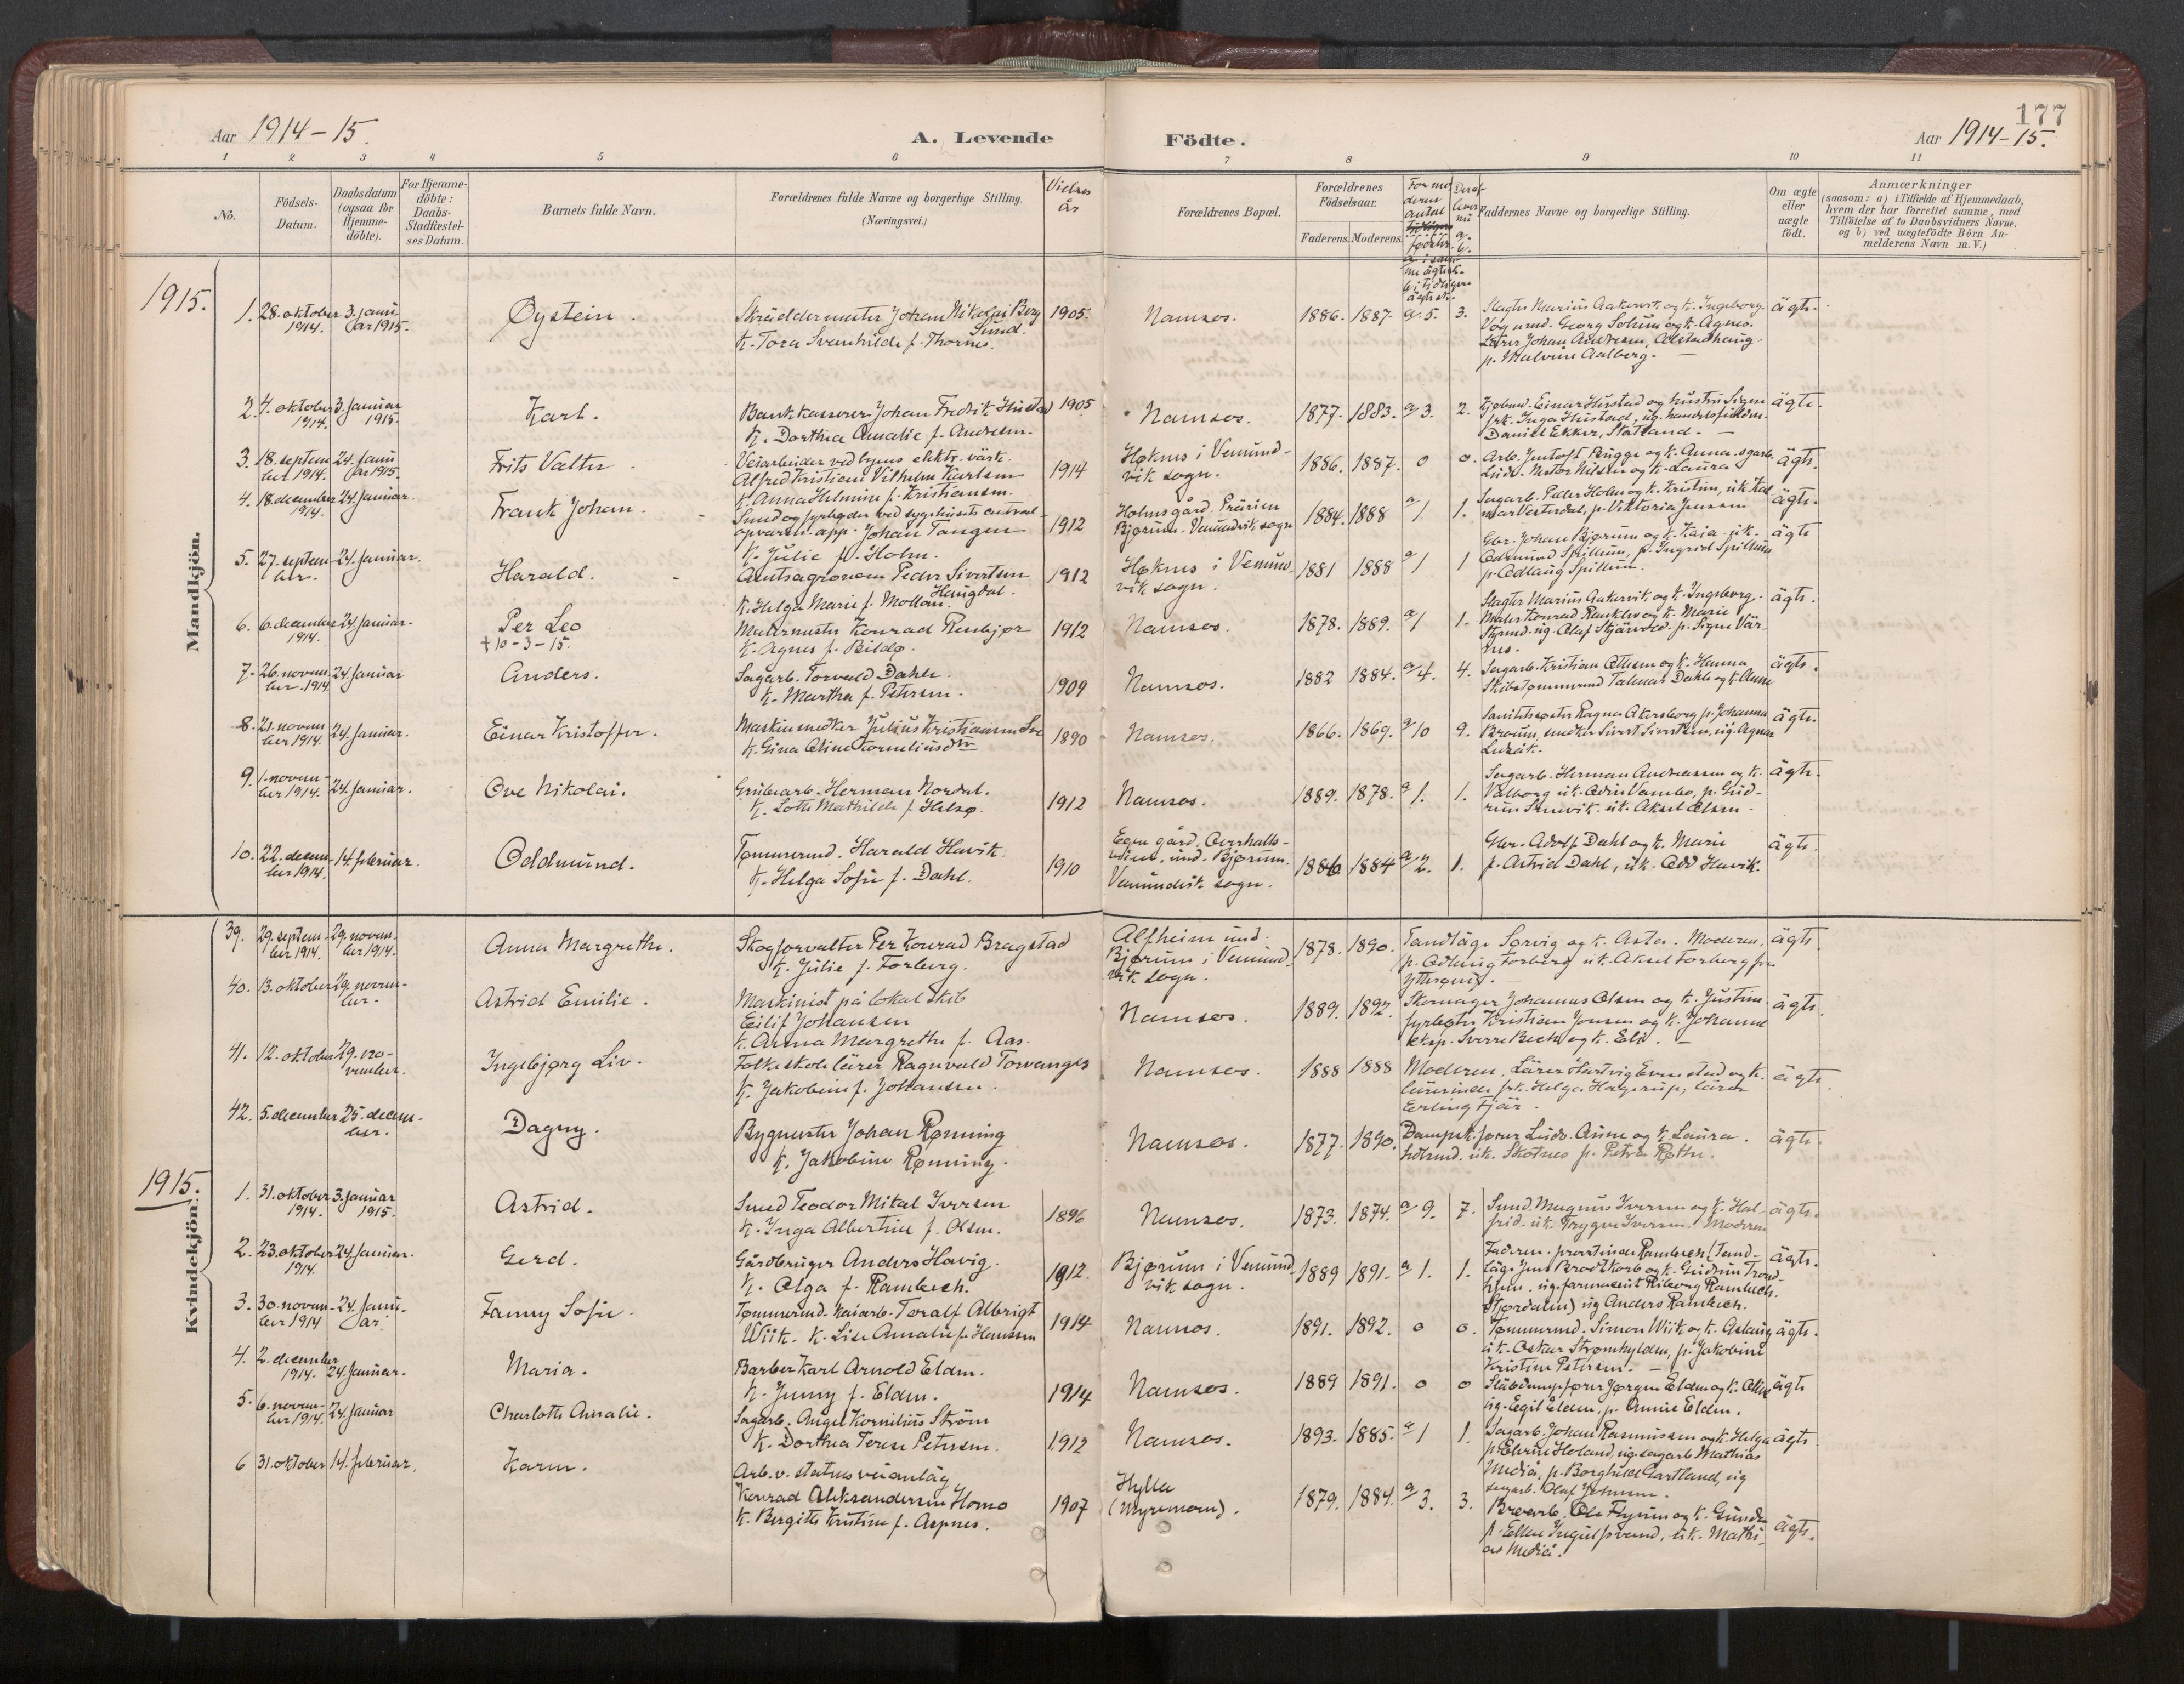 177
Aar 1914-15.
A. Levende
Födte.
Aar 1914-15.
1 2 3 4 5 6 7 8 9 10 11
No.
Födsels-
Datum.
Daabsdatum
(ogsaa for
Hjemme-
döbte).
For Hjemme-
döbte:
Daabs-
Stadfæstel-
ses Datum.
Barnets fulde Navn.
Forældrenes fulde Navne og borgerlige Stilling.
(Næringsvei.)
Vielses
år
Forældrenes Bopæl.
Forældrenes
Födselsaar.
Faderens. Moderens.
Faddernes Navne og borgerlige Stilling.
Om ægte
eller
uægte
födt.
Anmærkninger
(saasom: a) i Tilfælde af Hjemmedaab,
hvem der har forrettet samme, med
Tilföielse af to Daabsvidners Navne.
og b) ved uægtefödte Börn An-
melderens Navn m. V.)
Mandkjön.
1915.
1. 28. oktober 1914. 3. januar 1915. Øystein.
Skræddermester Johan Nikolai Berg
Sund.
K. Tora Svanhilde f. Thornes.
1905. Namsos. 1886. 1887. a 5. 3.
Slagter Marius Aakervik og k. Ingeborg.
Georg Solum og k. Agnes.
Lærer Johan Andresen,
p. Malvine Aalberg.
ägte.
2. 4. oktober 1914. 3. januar 1915. Karl.
Bankkasserer Johan Fredrik Hustad
K. Dorthea Amalie f. Andresen.
1905 Namsos. 1877. 1883. a 3. 2.
Kjøbmd. Einar Hustad og hustru Signe
frk. Inga Hustad, ug.
Daniel Ekker, Statland.
ägte.
3. 18. september 1914. 24. januar 1915. Frits Valter
Veiarbeider ved byens elektr. värk.
Alfred Kristian Vilhelm Karlsen
K. Anna Helmine f. Kristiansen.
1914 Høknes i Vemund-
vik sogn.
1886. 1887. 0 0.
ägte.
4. 18. december 1914. 24. januar. Frank Johan.
Smed og fyrbøder ved sygehusets central-
opvarm. app. Johan Tangen
K. Julie f. Holm.
1912 Holmsgård. Prärien
Bjørum. Vemundvik sogn
1884. 1888 a 1 1.
Sagarb. Peder Holm og k. Kristine, uk. Kal
mar Vesterdal, p. Viktoria Jensen
ägte.
5. 27. september. 24. januar. Harald.
Amtsagronom Peder Sivertsen
Haugdal.
K. Helga Marie f. Mollan.
1912 Høknes i Vemund-
vik sogn.
1881 1888 a 1 1
Gbr. Johan Bjørum og k. Kaia. uk.
Odmund Spillum, p. Ingrid Spillum
p. Odlaug Spillum.
ägte
6. 6. december 1914. 24. januar. Per Leo
+ 10-3-15.
Malermester Konrad Rusbjør
K. Agnes f. Bildø.
1912 Namsos. 1878. 1889. a 1 1.
Slagter Marius Aakervik og k. Ingeborg.
Maler Konrad Ranklev og k. Marie
Styrmd. ug. Olaf Skjärvold. p. Signe Vär
nes.
ägte.
7. 26. november 1914. 24. januar Anders.
Sagarb. Torvald Dahle.
K. Martha f. Petersen.
1909 Namsos. 1882 1884. a 4. 4.
Sagarb. Kristian Ottesen og k. Hanna
Skibstømmermd Dahle og k. Anne
ägte.
8. 21. november 1914. 24. januar. Einar Kristoffer.
K. Gina Oline Korneliusdtr
1890 Namsos. 1866. 1869. a 10 9.
ägte.
9. 1. november 1914. 24. januar. Ove Nikolai.
Grubearb. Herman Nordal.
K. Lotte Mathilde f. Helsø.
1912 Namsos. 1889. 1878. a 1. 1.
Sagarb. Herman Andreassen og k.
Valborg uk. Odin Vambo, p. Gud-
run uk. Aksel Olsen.
ägte.
10. 22. december 1914. 14. februar. Oddmund.
Tømmermd. Harald Havik.
K. Helga Sofie f. Dahl.
1910 Egen gård, Overhalls-
veien, und. Bjørum.
Vemundvik sogn.
1886. 1884 a 2. 1.
Gbr. Adolf Dahl og k. Marie
p. Astrid Dahl, uk. Odd Havik.
ägte.
Kvindekjön.
39. 29. september 1914. 29. november 1914. Anna Margrethe.
Skogforvalter Per Konrad Bragstad
K. Julie f. Forberg.
Alfheim und.
Bjørum i Vemund-
vik sogn.
1878. 1890.
Tandläge Sørvig og k. Asta. Moderen.
p. Odlaug Forberg uk. Aksel Forberg fra
Ytterøen.
ägte.
40. 13. oktober 29. november. Astrid Emilie.
Maskinist på lokalskib
Eilif Johansen
K. Anna Margrethe f. Aas.
Namsos. 1889. 1892.
Skomager Johannes Olsen og k. Justine
fyrbøter Kristian Jensen og k. Johanne
eksp. Sverre Bech og k. Eli.
ägte.
41. 12. oktober 29. november. Ingebjørg Liv.
Folkeskolelärer Ragnvald Torvanger
K. Jakobine f. Johansen.
Namsos. 1888 1888
Moderen. Lärer Hartvig Evenstad og k.
lärerinde frk. Helga Hagerup, lärer
Erling Fjär.
ägte.
42. 5. december 25. december. Dagny.
Bygmester Johan Rønning
K. Jakobine Rønning.
Namsos. 1877. 1890.
Dampsk. fører Ludv. Aune og k. Laura.
uk. Skotnes p. Petra Røthe.
ägte.
1915.
1. 31. oktober 1914. 3. januar 1915. Astrid.
Smed Teodor Mikal Iversen
K. Inga Albertine f. Olsen.
1896 Namsos. 1873. 1874. a 9. 7.
Smed. Magnus Iversen og k. Hal
frid. uk. Trygve Iversen. Moderen
ägte.
2. 23. oktober 1914. 24. januar. Gerd.
Gårdbruger Anders Havig.
K. Olga f. Rambech.
1912. Bjørum i Vemund-
vik sogn.
1889 1891. a 1. 1.
Faderen. provstinde Rambech (Tand-
läge Jens Brodtkorb og k. Gudrun Trond-
hjem. ug. farmaceut Riborg Rambech.
Stjørdalen) ug Anders Rambech.
ägte.
3. 30. november 1914 24. januar. Fanny Sofie.
Tømmermd. kaiarb. Toralf Albrigt
Wiik. K. Lise Amalie f. Hansen
1914 Namsos. 1891. 1892. 0 0.
Tømmermd. Simon Wiik og k. Aslaug
uk. Oskar Strømhylden, p. Jakobine
Kristine Petersen.
ägte.
4. 2. december 1914. 24. januar. Maria.
Barber Karl Arnold Elden.
K. Jenny f. Elden.
1914 Namsos. 1889 1891. 0 0
Släbedampfører Jørgen Elden og k. Oline
ug. Egil Elden, p. Annie Elden.
ägte
5. 6. november 1914. 24. januar Charlotte Amalie.
Sagarb. Angel Kornelius Strøm
K. Dorthea Terese Petersen.
1912 Namsos. 1893. 1885. a 1 1.
Sagarb. Johan Rasmussen og k. Helga
p. Eline Høland, ug. sagarb Mathias
Mediå, p. Borghild Gartland, ug
sagarb. Olaf Johnsen.
ägte
6 31. oktober 14. februar. Karen.
Arb. v. statens veianläg
Konrad Aleksandersen Homo
K. Bergitte Kristine f. Aspnes.
1907 Hylla
(Myremoen).
1879. 1884. a 3. 3.
Broarb. Ole Flynum og k. Gunda
p. Ellen Ingulfsvand, uk. Mathi-
as Mediå.
ägte.